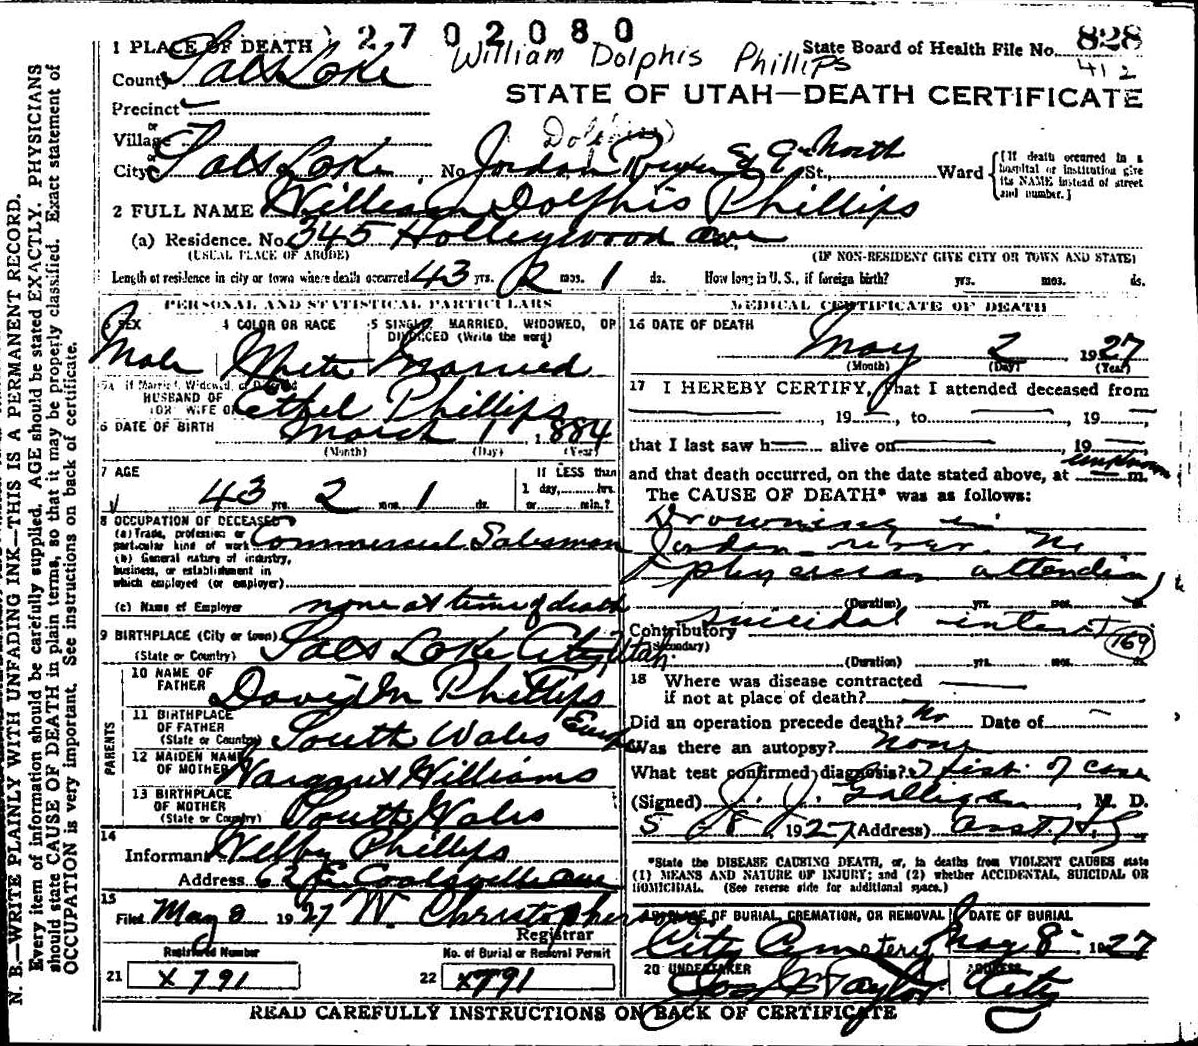 2702080
1 PLACE OF DEATH
William Dolphis Phillips
State Board of Health File No. 828
412
County Salt Lake
STATE OF UTAH—DEATH CERTIFICATE
Precinct
or
Village
or
City Salt Lake No. Jordan River & 9th North St., Ward {[If death occurred in a hospital or institution give its NAME instead of street and number.]
2 FULL NAME William Dolphis Phillips
(a) Residence. No. 345 Hollywood ave
(USUAL PLACE OF ABODE) (IF NON-RESIDENT GIVE CITY OR TOWN AND STATE)
Length of residence in city or town where death occurred 43 yrs. 2 mos. 1 ds. How long in U. S., if foreign birth? yrs. mos. ds.
PERSONAL AND STATISTICAL PARTICULARS
3 SEX 4 COLOR OR RACE 5 SINGLE, MARRIED, WIDOWED, OR
DIVORCED (Write the word)
Male White Married
5a If Married, Widowed, or Divorced
HUSBAND OF
(OR) WIFE OF Ethel Phillips
6 DATE OF BIRTH March 1 1884
(Month) (Day) (Year)
7 AGE IF LESS than
1 day, hrs.
43 yrs. 2 mos. 1 ds. or min.?
8 OCCUPATION OF DECEASED
(a) Trade, profession or
particular kind of work Commercial Salesman
(b) General nature of industry,
business, or establishment in
which employed (or employer)
(c) Name of Employer none at time of death
9 BIRTHPLACE (City or town) Salt Lake City, Utah
(State or Country)
PARENTS
10 NAME OF
FATHER David M Phillips
11 BIRTHPLACE
OF FATHER
(State or Country) South Wales
12 MAIDEN NAME
OF MOTHER Margaret Williams
13 BIRTHPLACE
OF MOTHER
(State or Country) South Wales
14
Informant Welby Phillips
Address
15
Filed May 8 1927 W. Christopherson
Registrar
Registered Number No. of Burial or Removal Permit
21 X791 22 X791
MEDICAL CERTIFICATE OF DEATH
16 DATE OF DEATH
May 2 1927
(Month) (Day) (Year)
17 I HEREBY CERTIFY, that I attended deceased from
, 19 to , 19
that I last saw h alive on , 19
unknown
and that death occurred, on the date stated above, at m.
The CAUSE OF DEATH* was as follows:
Drowning in
Jordan river. No
physician attending
(Duration) yrs. mos. ds.
Contributory suicidal intent 169
(Secondary)
(Duration) yrs. mos. ds.
18 Where was disease contracted
if not at place of death?
Did an operation precede death? No Date of
Was there an autopsy? none
What test confirmed diagnosis? Hist. of case
(Signed) J. J. Galligan, M. D.
5/8 1927 (Address)
*State the DISEASE CAUSING DEATH, or, in deaths from VIOLENT CAUSES state
(1) MEANS AND NATURE OF INJURY; and (2) whether ACCIDENTAL, SUICIDAL OR
HOMICIDAL. (See reverse side for additional space.)
19 PLACE OF BURIAL, CREMATION, OR REMOVAL DATE OF BURIAL
City Cemetery May 8 1927
20 UNDERTAKER ADDRESS
Jos Wm Taylor City
READ CAREFULLY INSTRUCTIONS ON BACK OF CERTIFICATE
N. B.—WRITE PLAINLY WITH UNFADING INK—THIS IS A PERMANENT RECORD.
Every item of information should be carefully supplied. AGE should be stated EXACTLY. PHYSICIANS
should state CAUSE OF DEATH in plain terms, so that it may be properly classified. Exact statement of
OCCUPATION is very important. See instructions on back of certificate.